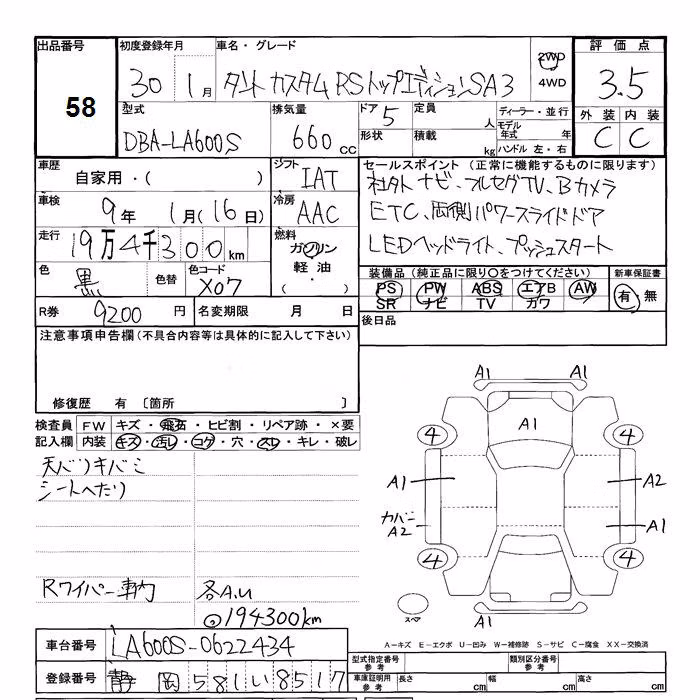 出品番号 初度登録年月 車名・グレード 評価点
58 30年 1月 タント カスタム RS トップエディション SA3 2WD 4WD 3.5
型式 排気量 ドア 5 定員 人 ディーラー・並行 外装 内装
DBA-LA600S 660 cc 形状 積載 kg モデル年式 年 ハンドル 左・右 C C
車歴 自家用・( ) シフト IAT セールスポイント (正常に機能するものに限ります)
車検 9年 1月(16日) 冷房 AAC 社外ナビ、フルセグTV、Bカメラ
走行 19万4千300km 燃料 ガソリン 軽油・( ) ETC、両側パワースライドドア
LEDヘッドライト、プッシュスタート
色 黒 色替 色コード X07 装備品 (純正品に限り○をつけてください) 新車保証書
PS PW ABS エアB AW 有・無
SR ナビ TV カワ
R券 9200円 名変期限 月 日 後日品
注意事項申告欄(不具合内容等は具体的に記入して下さい)
修復歴 有 〔箇所 〕
検査員 FW キズ・飛石・ヒビ割・リペア跡・×要
記入欄 内装 キズ・汚レ・コゲ・穴・スレ・キレ・破レ
天バリキバミ
シートへたり
Rワイパー車内 各A.U
◎194300km
A1 A1
A1
4 4
A1 A2
カバー A2 A1
4 4
スペア A1
A-キズ E-エクボ U-凹み W-補修跡 S-サビ C-腐食 XX-交換済
車台番号 LA600S-0622434 型式指定番号 参考 類別区分番号 参考
登録番号 静岡 581 い 8517 車庫証明用 参考 長さ cm 幅 cm 高さ cm